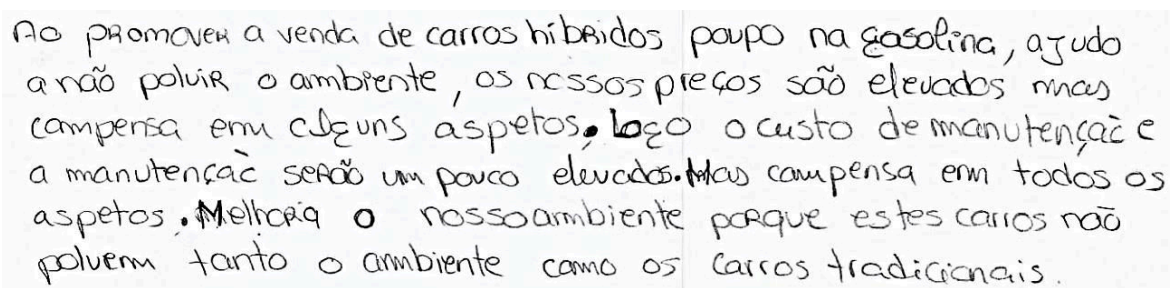 Ao promover a venda de carros híbridos poupo na gasolina, ajudo
a não poluir o ambiente, os nossos preços são elevados mas
compensa em alguns aspetos, logo o custo de manutenção e
a manutenção serão um pouco elevados. Mas compensa em todos os
aspetos. Melhoria o nosso ambiente porque estes carros não
poluem tanto o ambiente como os carros tradicionais.